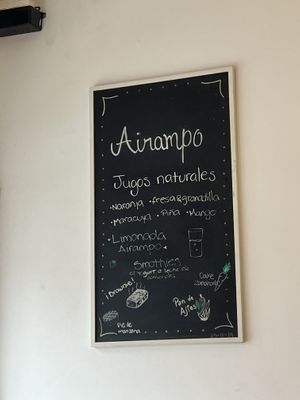 Airampo
Jugos naturales
• Naranja • fresa & granadilla
• Maracuya • Piña • Mango
• Limonada
Airampo •
Smothies
c/ yogurt o leche de
almendras
¡Brownie!
Cake
zanahoria
Pan de
Ajies
Pie de
manzana